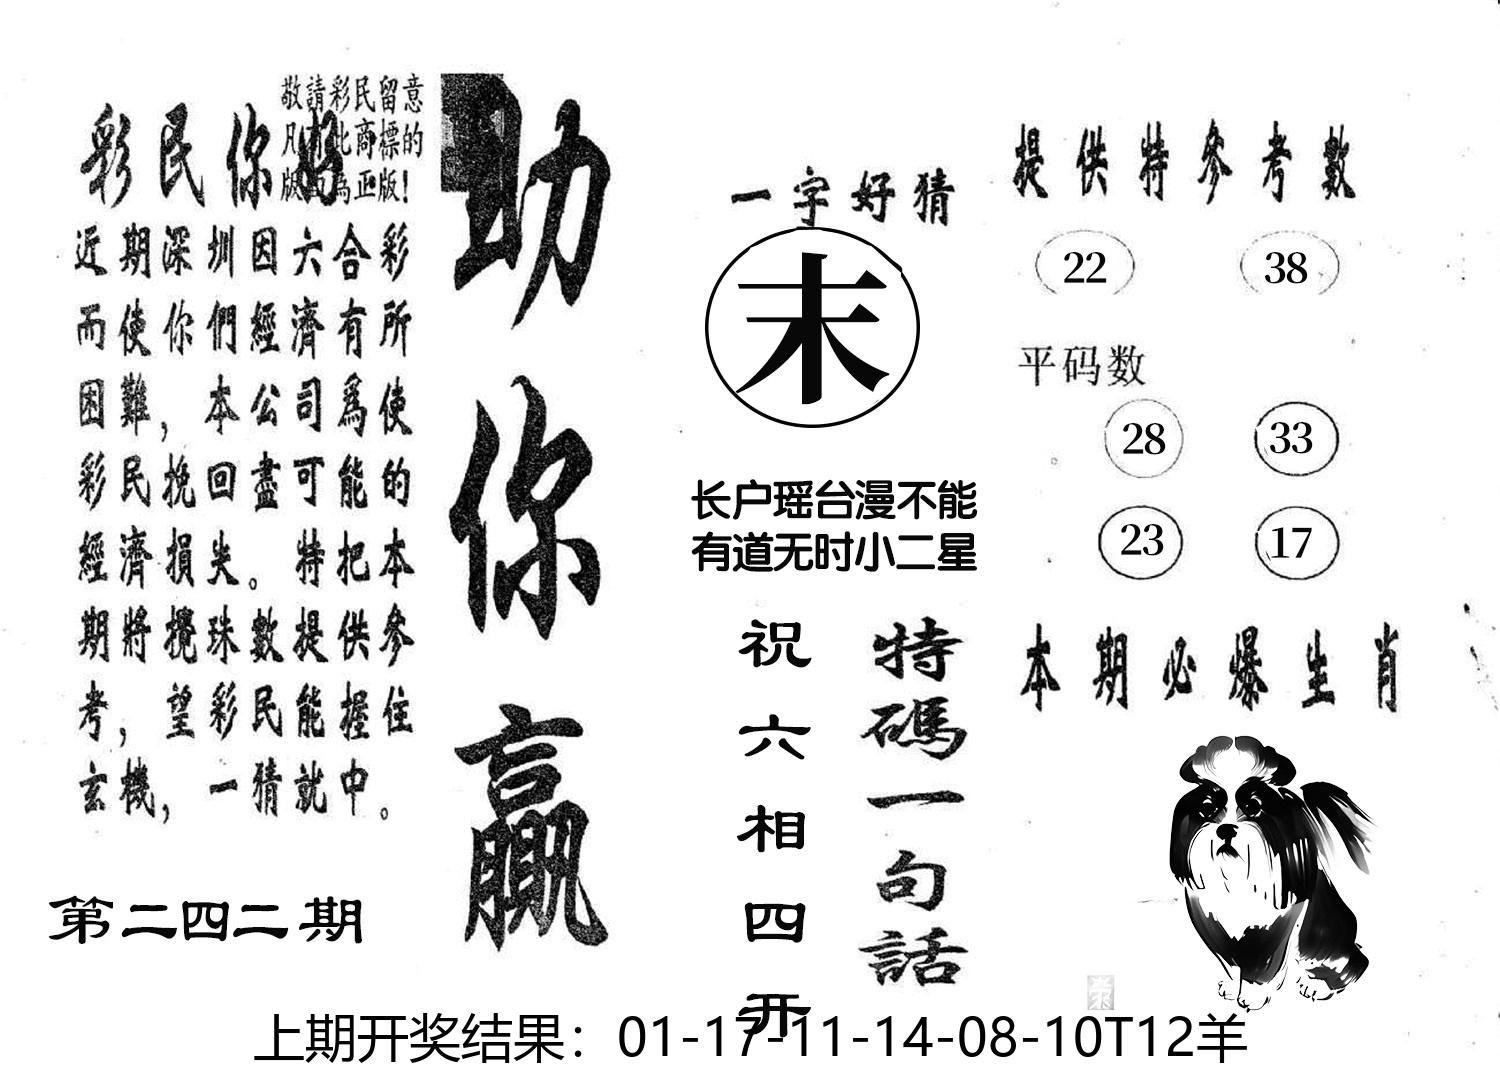 敬請彩民留意
凡有此商標的
版面為正版!
彩民你好
近期深圳因六合彩
而使你們經濟有所
困難,本公司爲使
彩民挽回盡可能的
經濟損失。特把本
期將攪珠數提供參
考,望彩民能握住
玄機,一猜就中。
第二四二期
助你赢
一字好猜
末
长户瑶台漫不能
有道无时小二星
特碼一句話
祝六相四开
提供特參考數
22 38
平码数
28 33
23 17
本期必爆生肖
上期开奖结果：01-17-11-14-08-10T12羊